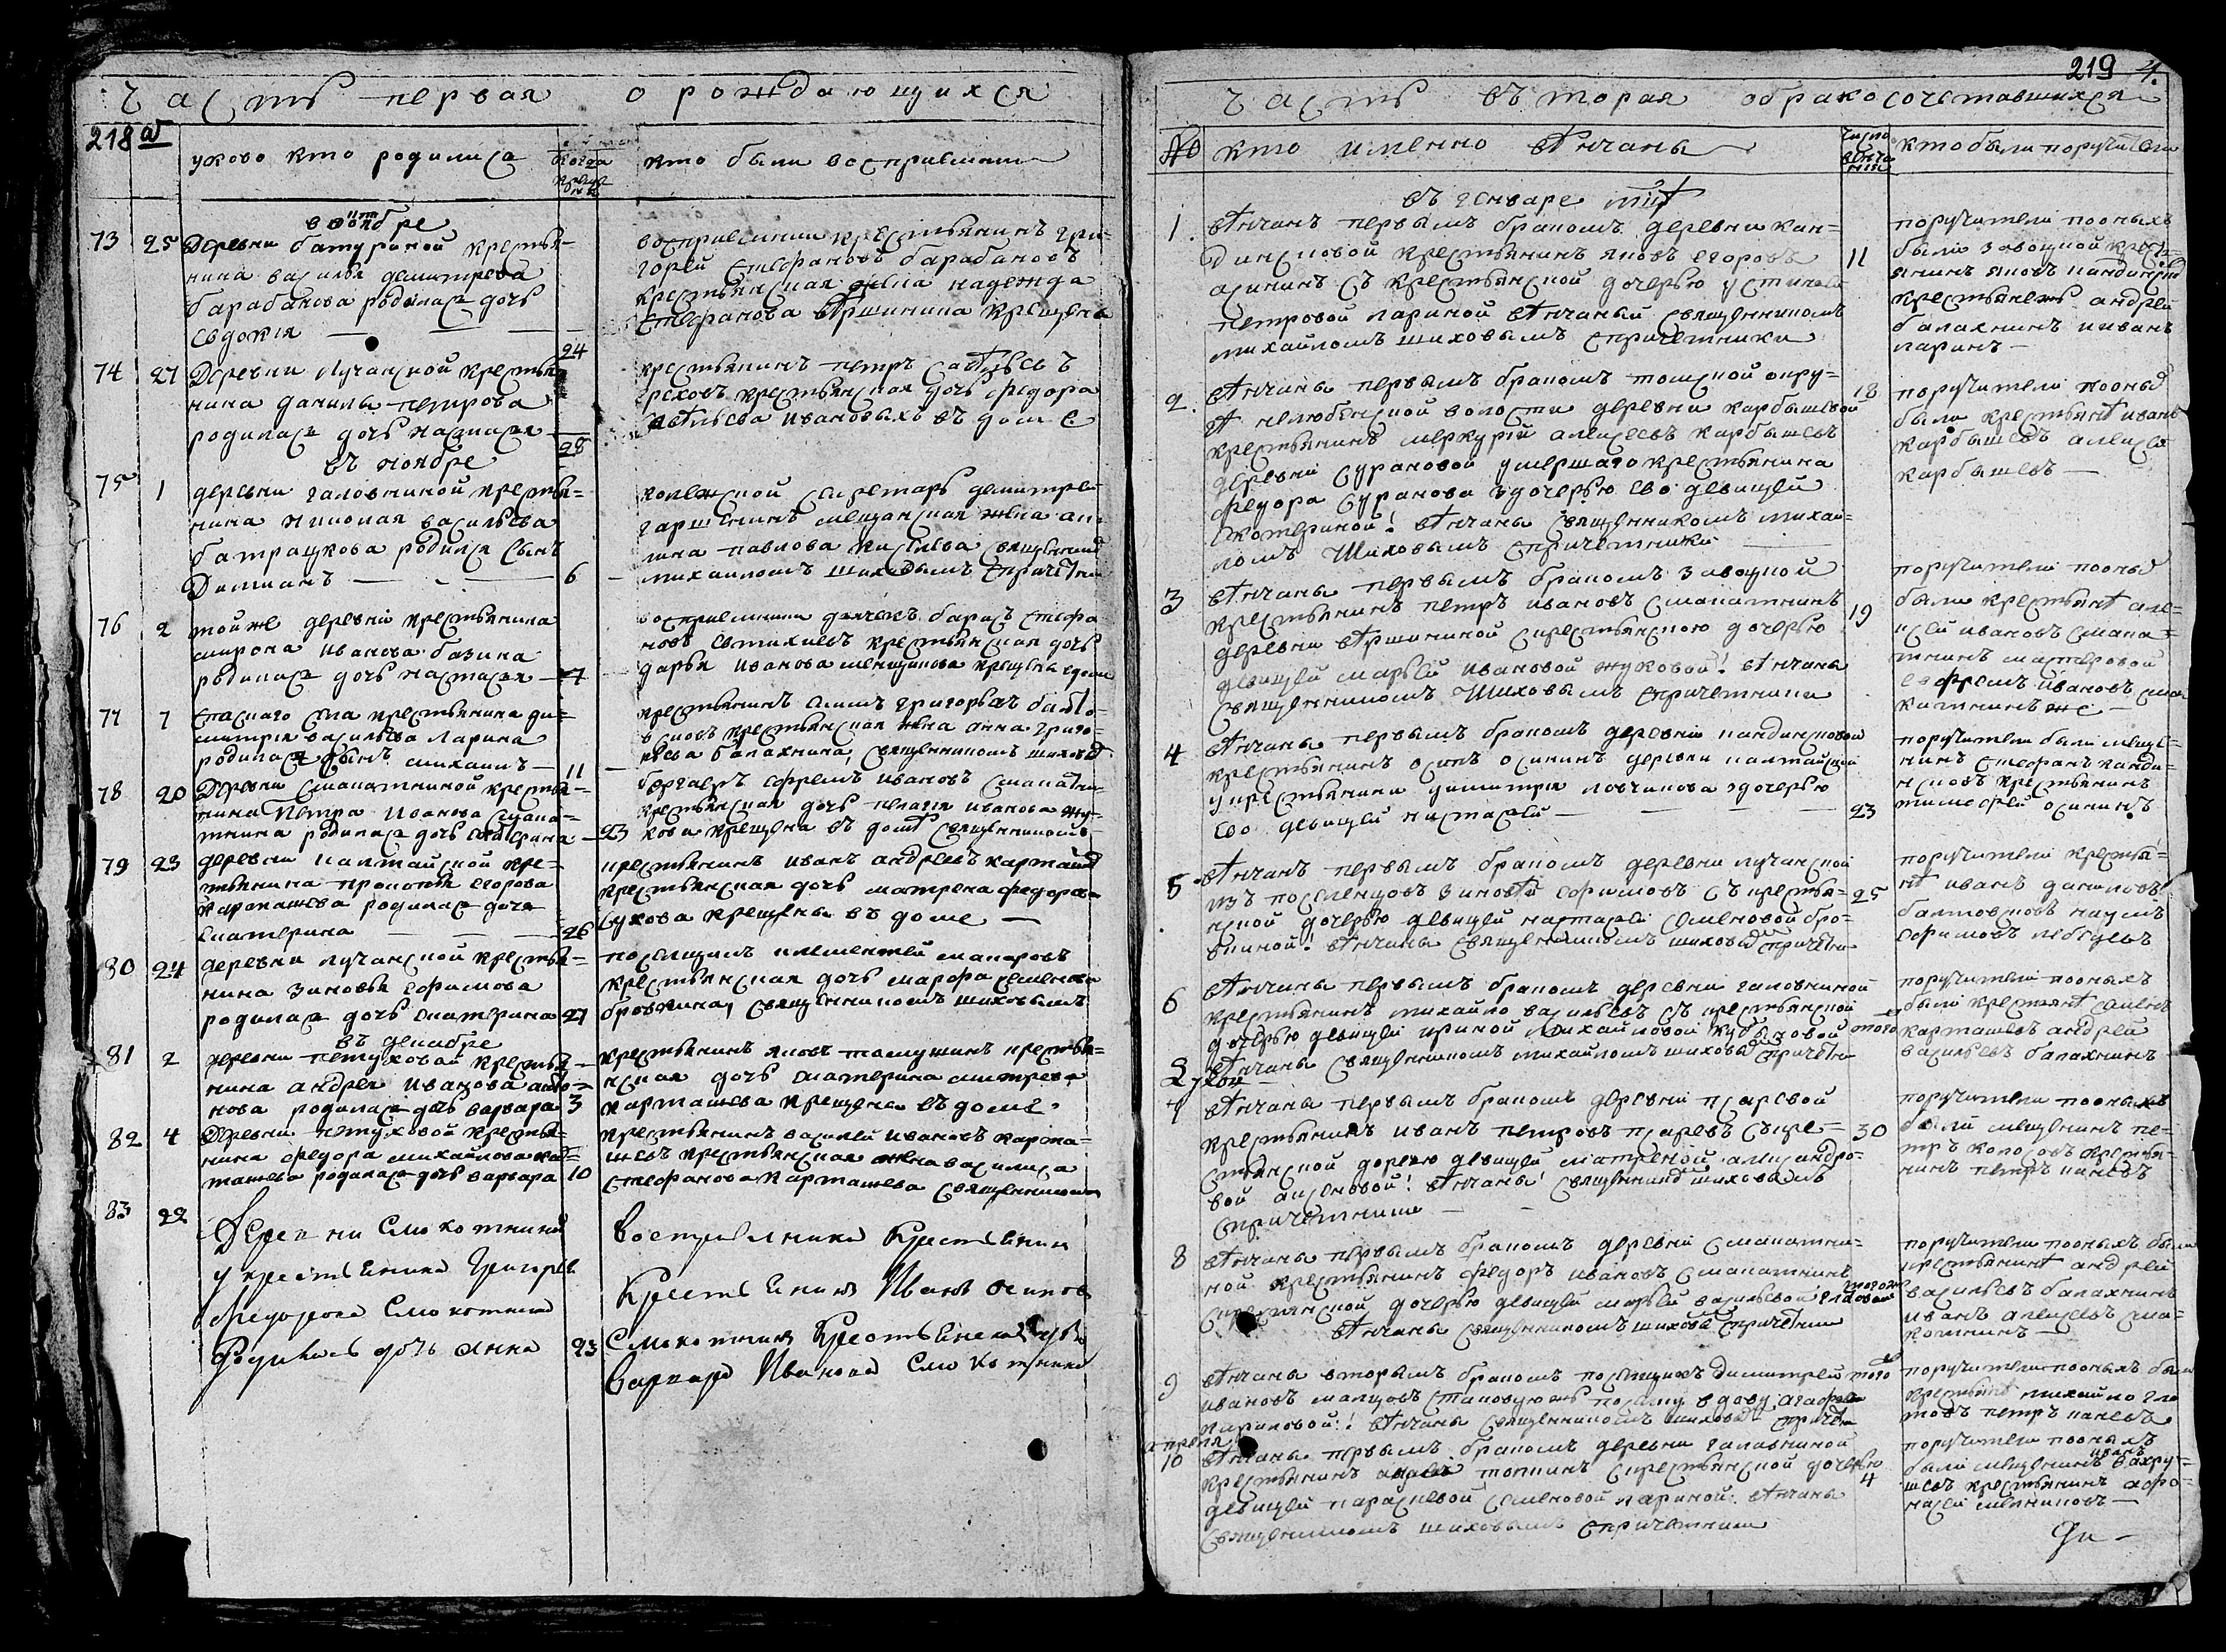 Часть первая о рождающихся
218 об
укого кто родился
когда крещены
кто были восприемники
в октябре
73 25 Деревни батуриной крестья-
нина василья демитрева
барабанова родилась дочь
Евдокия —
24
восприемники крестьянинъ гри-
горей Стефановъ барабановъ
крестьянская жена надежда
Стефанова вѣршинина крещена
74 27 Деревни лучанской крестья
нина данилы петрова
родилась дочь настасья —
28
крестьянинъ петръ савѣльевъ
греховъ крестьянская дочь федора
ивановыхъ въ доме
въ ноябре
75 1 деревни галовниной крестья-
нина николая васильева
батрацкова родился сынъ
Дамианъ — 6
колежской секретарь демитрей
гаршенинъ мещанская жена ан-
на павлова киселева священник
михаиломъ шиховымъ спричетни
76 2 тойже деревни крестьянина
мирона иванова базина
родилась дочь настасья — 7
восприемники дьячекъ барисъ стефа
новъ евтихиевъ крестьянская дочь
дарья иванова менщикова крещена вдоме
77 7 спаскаго села крестьянина ди-
митрия васильева ларина
родился сынъ михаилъ — 11
крестьянинъ григорьевъ балто-
всковъ крестьянская жена анна григо-
рьева балахнина, священникомъ шиховы
78 20 Деревни Смакатниной крестья-
нина Петра Иванова Смака-
тнина родилась дочь екатерина — 23
ефремъ ивановъ смакатни
крестьянская дочь пелагия иванова жу-
кова крещена въ домѣ священникомъ
79 23 деревни калтайской кре-
стьянина прокопья егорова
карташева родилась дочь
екатерина — 26
крестьянинъ иванъ андреевъ карташев
крестьянская дочь матрена федорова
сухова крещены въ доме —
80 24 деревни лучанской крестья-
нина зиновья ефимова
родилась дочь екатерина 27
поселщикъ клементей макаровъ
крестьянская дочь марфа семенова
бровкина, священникомъ шиховымъ
въ декабре
81 2 деревни петуховой крестья-
нина андрея иванова
родилась дочь варвара 3
крестьянинъ яковъ крестья-
нская дочь екатерина митрева
карташева крещена въ доме
82 4 Деревни петуховой крестья-
нина федора михайлова кар-
ташева родилась дочь варвара 10
крестьянинъ василей ивановъ карта-
шевъ крестьянская жена василиса
стефанова карташева священникомъ
83 22 Деревни Смокотниной
у крестьянина Григорея
Федорова Смокотнина
Родилась дочь Анна 23
Восприемники Крестьянин
Крестьянинъ Иванъ осипов
Смокотнинъ Крестьянская дочь
Варвара Иванова Смокотнина
219
Часть вторая обракосочетавшихся
№ кто именно вѣнчаны
число венчания
кто были поручители
въ генваре
1. вѣнчанъ первымъ бракомъ деревни кан-
динсковой крестьянинъ яковъ егоровъ 11
осининъ съ крестьянской дочерью устиньей
петровой лариной вѣнчаный священникомъ
михайломъ шиховымъ спричетники
поручители пооныхъ
были заводской кресть-
янинъ яковъ кандинской
крестьяне андрей
балахнинъ ииванъ
ларинъ —
2. вѣнчаны первымъ бракомъ томской окру- 18
ги нелюбинской волости деревни карбышевой
крестьянинъ меркурий алексеевъ карбышевъ
деревни сурановой умершаго крестьянина
федора суранова здочерью ево девицей
екатериной! вѣнчаны священникомъ михай-
ломъ Шиховымъ спричетники
поручители пооных
были крестьянѣ иванъ
карбышевъ алексей
карбышевъ —
3 вѣнчаны первымъ бракомъ заводской
крестьянинъ петръ ивановъ смакатнинъ 19
деревни вѣршининой скрестьянскою дочерью
девицей марьей ивановой жуковой! вѣнчаны
священникомъ Шиховымъ спричетники
поручители пооных
были крестьянѣ але-
ксей ивановъ смака-
тнинъ мастеровой
ефремъ ивановъ смо
катнинъ же —
4 вѣнчаны первымъ бракомъ деревни кандинсковой
крестьянинъ осипъ осининъ деревни калтайской
укрестьянина димитрия ловчикова здочерью
ево девицей настасьей — 23
поручители были меща-
нинъ стефанъ канди-
нсковъ крестьянинъ
тимофей осининъ
5 вѣнчанъ первымъ бракомъ деревни лучанской
изъ поселенцовъ зиновей ефимовъ съ крестья- 25
нской дочерью девицей настасьей семеновой бро-
вкиной! вѣнчаны священникомъ шиховы спричетни
поручители крестья-
не иванъ даниловъ
балтовсковъ наумъ
ефимовъ лебедевъ
6 вѣнчаны первымъ бракомъ деревни галовниной
крестьянинъ михайло васильевъ съ крестьянской
дочерью девицей ириной михайловой того
вѣнчаны священникомъ михайломъ шиховы спричетни
поручители пооныхъ
были крестьянѣ семенъ
карташевъ андрей
васильевъ балахнинъ
7 вѣнчаны первымъ бракомъ деревни псаревой
крестьянинъ иванъ петровъ псаревъ скре- 30
стьянской дочерью девицей матреной александро-
вой аксеновой! вѣнчаны священник шиховымъ
спричетники
поручители пооныхъ
были мещенинъ пе-
тръ колосовъ крестья-
нинъ петръ каневъ
8 вѣнчаны первымъ бракомъ деревни смакатни-
ной крестьянинъ федоръ ивановъ смакатнинъ
скрестьянской дочерью девицей марьей васильевой того
вѣнчаны священникомъ шиховы спричетни
поручители пооныхъ были
крестьянѣ андрей
васильевъ балахнинъ
иванъ алексеевъ сма-
котнинъ —
9 вѣнчаны вторымъ бракомъ поселщикъ димитрей того
ивановъ малцовъ вдову агафью
кариковой! вѣнчаны священникомъ шиховы спричетни
поручители пооныхъ были
крестьянѣ михайло гла
товъ петръ каневъ
апреля
10 вѣнчаны первымъ бракомъ деревни галавниной
крестьянинъ андрей скрестьянской дочерью 4
девицей парасковей семеновой лариной: вѣнчаны
священникомъ шиховымъ спричетники
поручители пооныхъ
были мещенинъ иванъ вахру-
шевъ крестьянинъ афо-
насей мелниковъ —